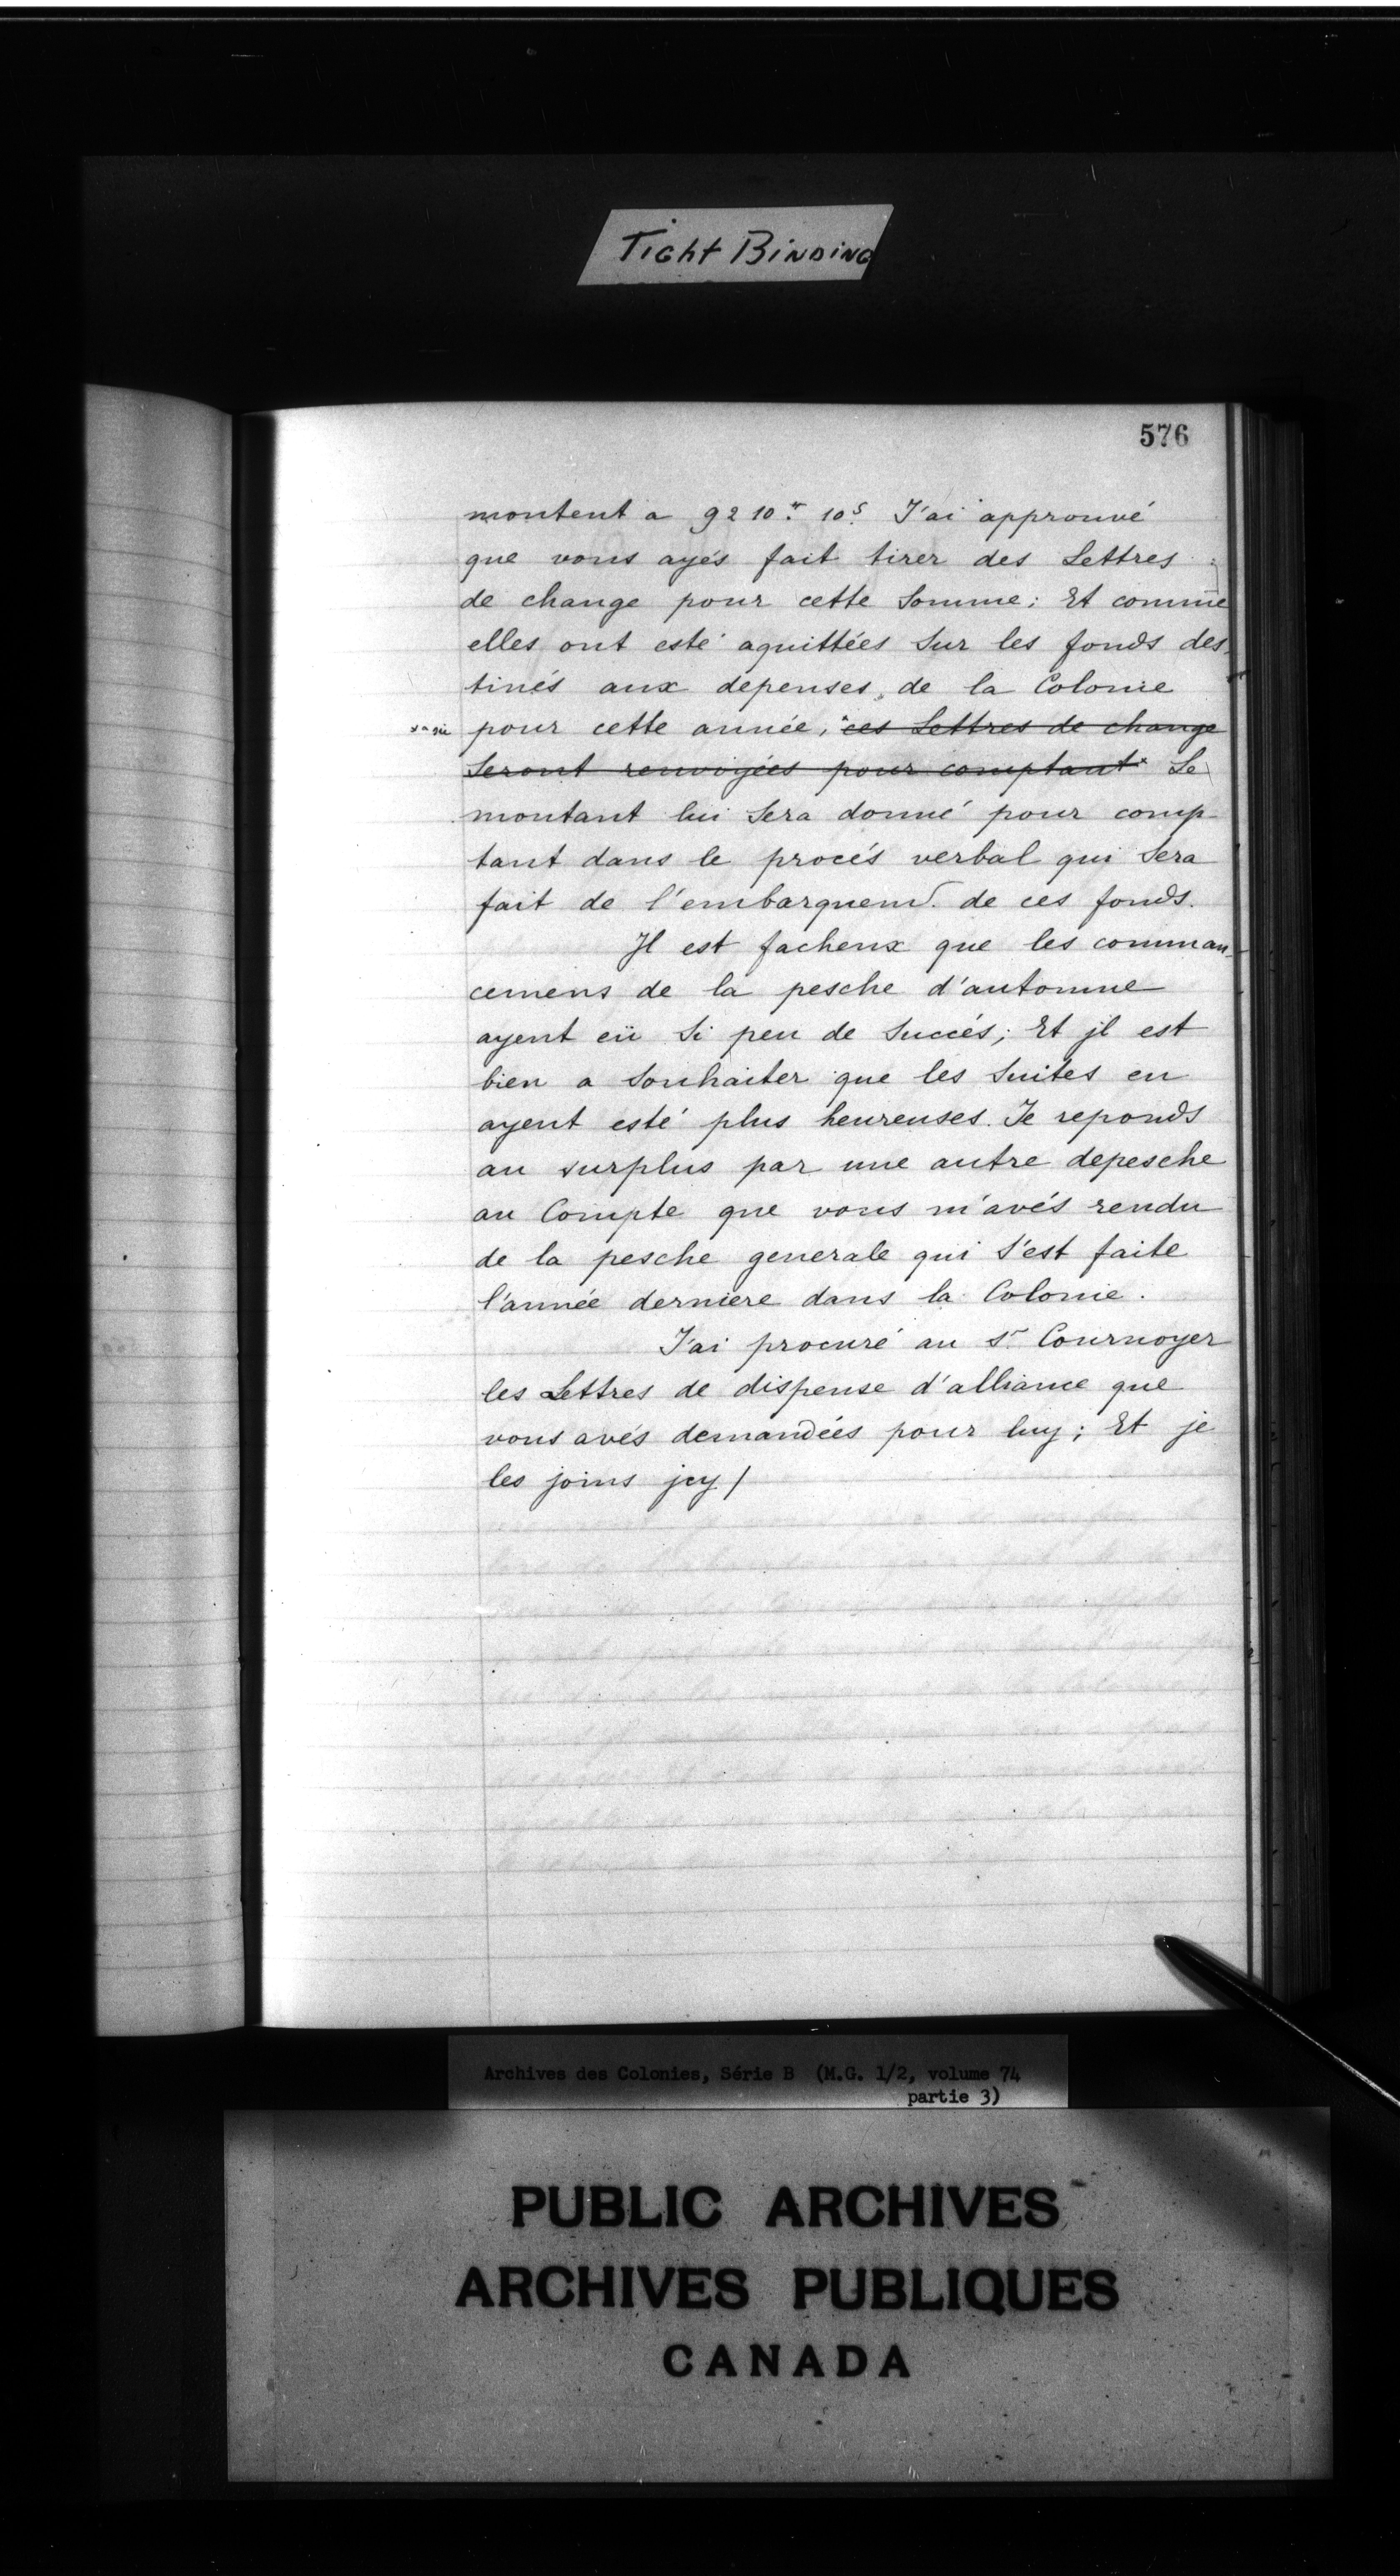 Tight Binding
576
montent a 9210.tt 10.s J'ai approuvé
que vous ayés fait tirer des Lettres
de change pour cette Somme; Et comme
elles ont esté aquittées Sur les fonds des-
tinés aux depenses, de la Colonie
pour cette année, ces Lettres de change
Seront renvoyées pour comptant Le
montant lui Sera donné pour comp-
tant dans le procés verbal qui Sera
fait de l'embarquemt. de ces fonds.
Jl est facheux que les comman-
cemens de la pesche d'automne
ayent eü Si peu de Succés; Et jl est
bien a Souhaiter que les Suites en
ayent esté plus heureuses. Je reponds
au surplus par une autre depesche
au Compte que vous m'avés rendu
de la pesche generale qui S'est faite
l'année derniere dans la Colonie.
J'ai procuré au Sr. Cournoyer
les Lettres de dispense d'alliance que
vous avés demandées pour luy; Et je
les joins jcy /
Archives des Colonies, Série B (M.G. 1/2, volume 74
partie 3)
PUBLIC ARCHIVES
ARCHIVES PUBLIQUES
CANADA